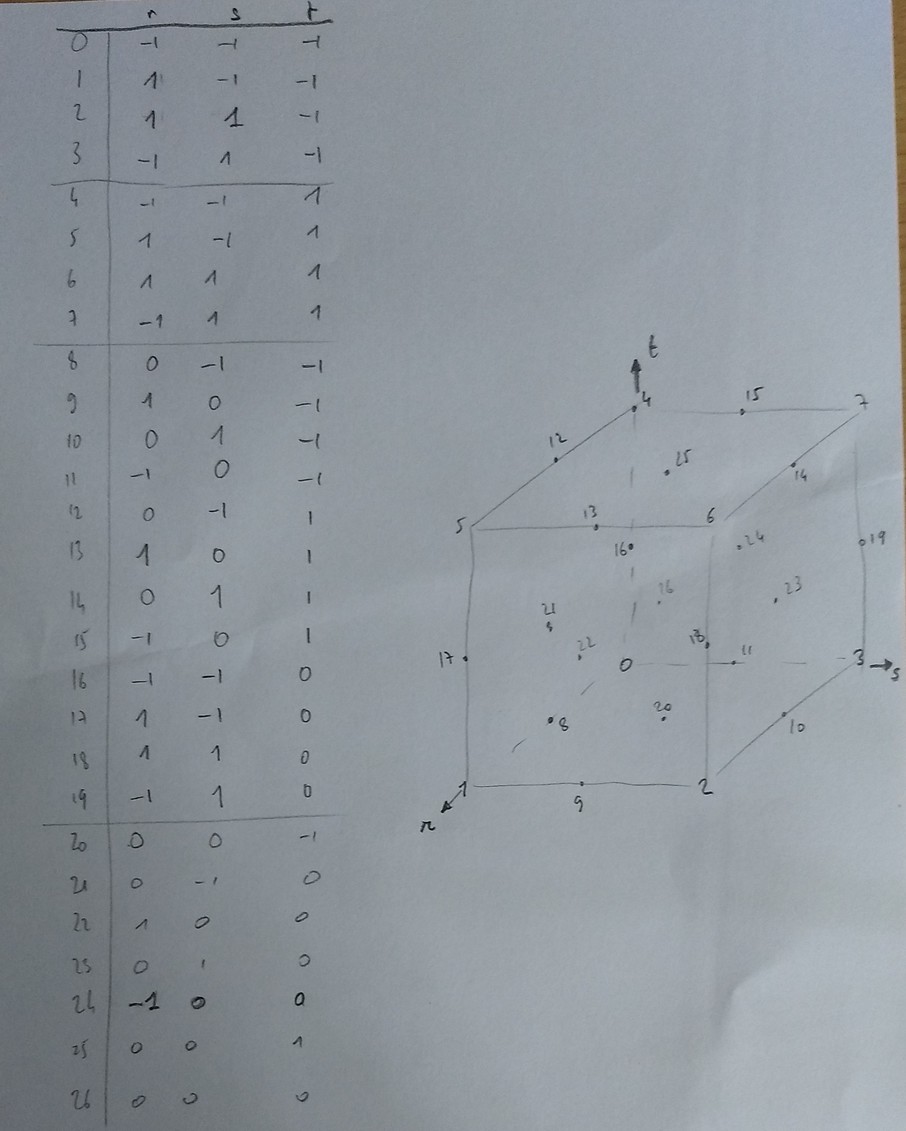 r s t
0 -1 -1 -1
1 1 -1 -1
2 1 1 -1
3 -1 1 -1
4 -1 -1 1
5 1 -1 1
6 1 1 1
7 -1 1 1
8 0 -1 -1
9 1 0 -1
10 0 1 -1
11 -1 0 -1
12 0 -1 1
13 1 0 1
14 0 1 1
15 -1 0 1
16 -1 -1 0
17 1 -1 0
18 1 1 0
19 -1 1 0
20 0 0 -1
21 0 -1 0
22 1 0 0
23 0 1 0
24 -1 0 0
25 0 0 1
26 0 0 0
t
4 15 7
12 25 14
5 13 6
16 24 19
21 26 23
17 22 0 18 11 3 s
8 20 10
1 9 2
r